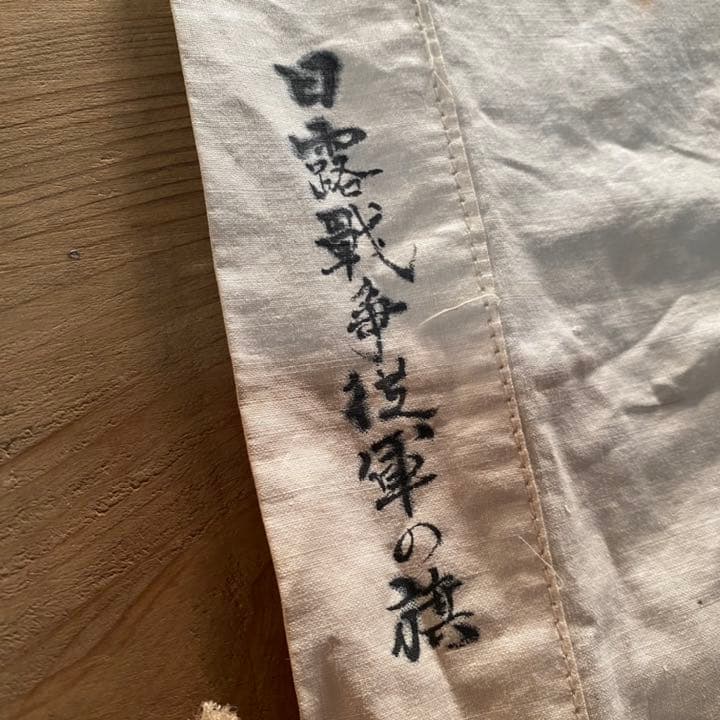 日露戰争従軍の旗